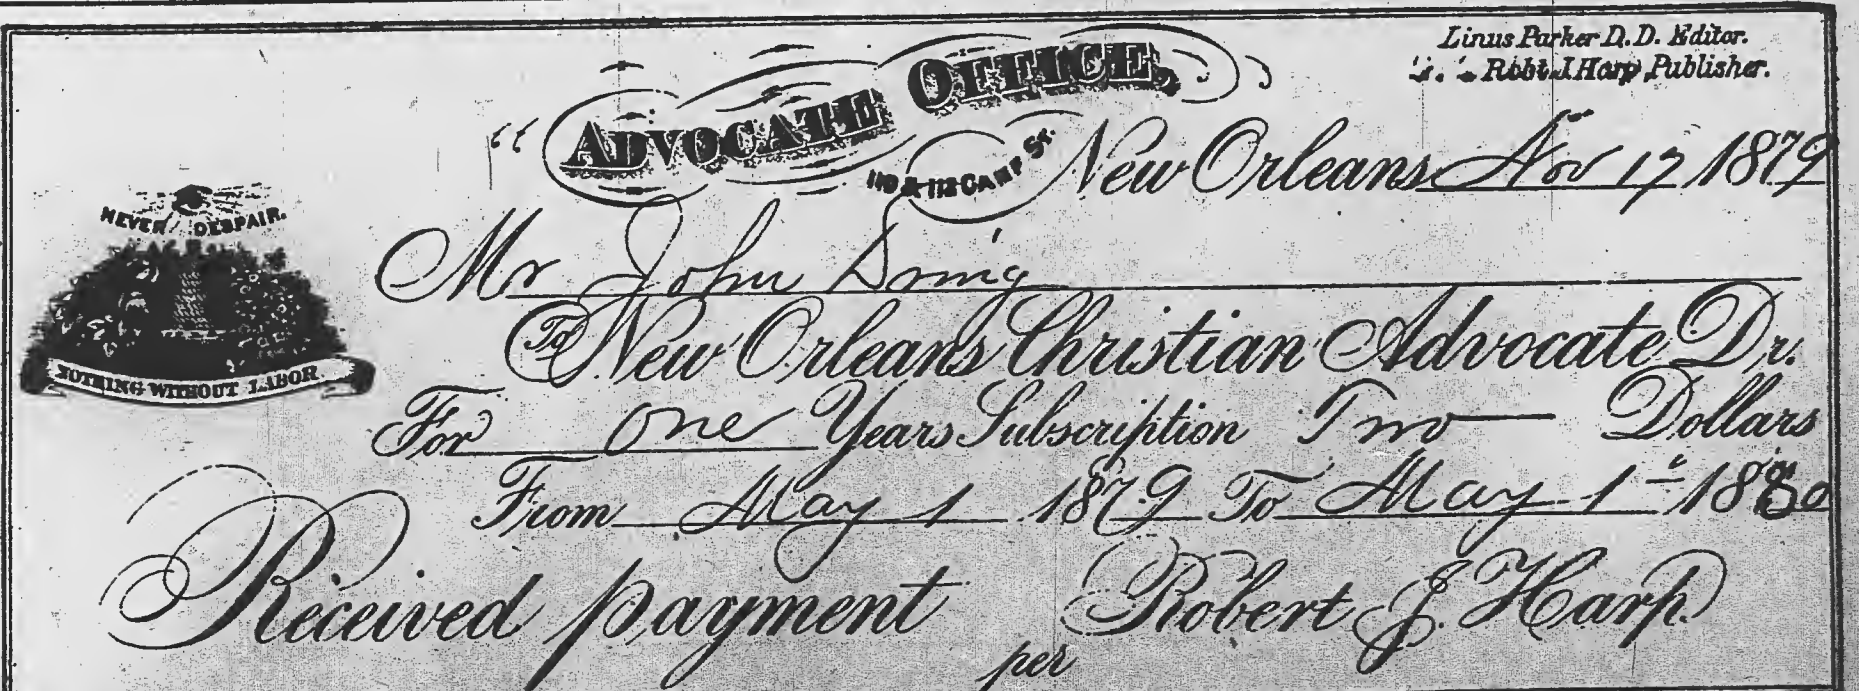 Linus Parker D.D. Editor.
Robt. J. Harp, Publisher.
ADVOCATE OFFICE,
110 & 112 CAMP ST.
New Orleans Nov 17 1879
NEVER DESPAIR.
Mr John
To New Orleans Christian Advocate Dr.
NOTHING WITHOUT LABOR.
For One Years Subscription Two Dollars
From May 1 1879 To May 1st 1880
Received payment Robert J. Harp.
per